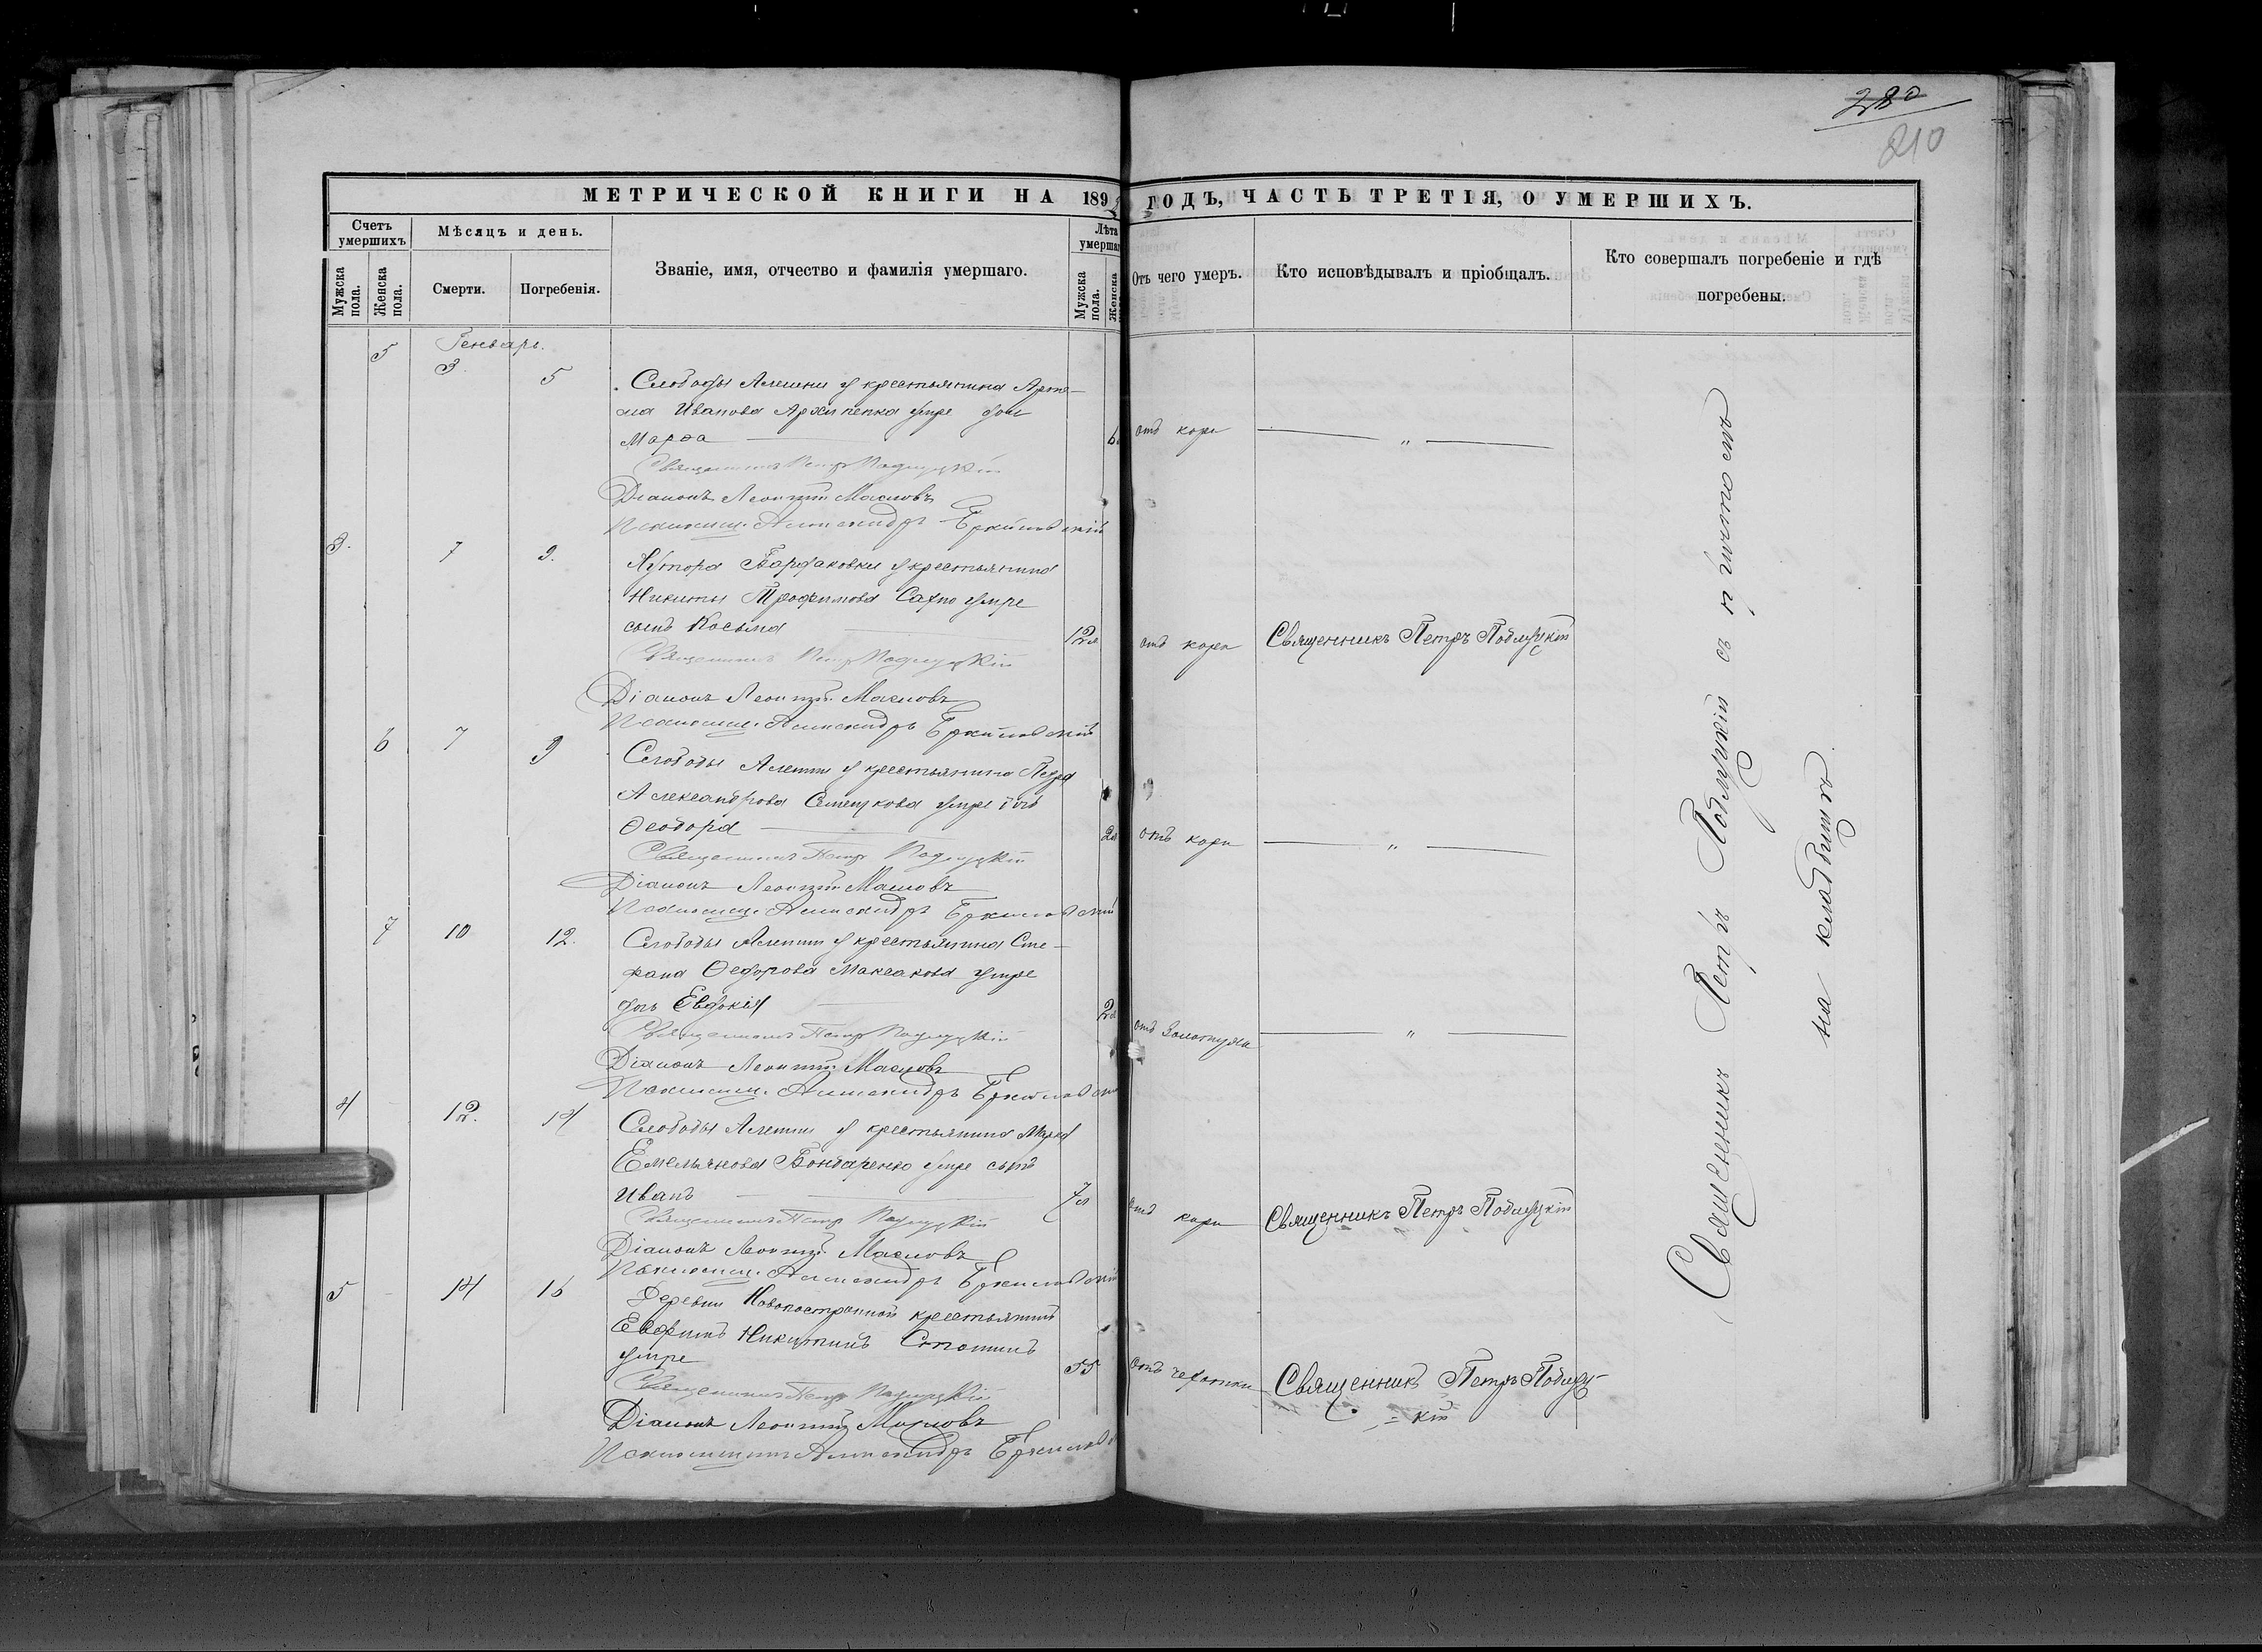 280
210
МЕТРИЧЕСКОЙ КНИГИ НА 1892 ГОДЪ, ЧАСТЬ ТРЕТІЯ, О УМЕРШИХЪ.
Счетъ умершихъ
Мужска пола.
Женска пола.
Мѣсяцъ и день.
Смерти.
Погребенія.
Званіе, имя, отчество и фамилія умершаго.
Лѣта умершаго
Мужска пола.
Женска
Отъ чего умеръ.
Кто исповѣдывалъ и пріобщалъ.
Кто совершалъ погребеніе и гдѣ погребены.
Генварь.
5 3 5
Слободы Алешни у крестьянина Арте-
ма Иванова Архипенка умре дочь
Марѳа 6 отъ кори "
Священникъ Петръ Подлуцкій
Діаконъ Леонтій Масловъ
Псаломщ. Александръ
3. 7 9.
Хутора Бардаковки у крестьянина
Никиты Трофимова Сахно умре
сынъ Косьма 12л отъ кори Священникъ Петръ Подлуцкій
Священникъ Петръ Подлуцкій
Діаконъ Леонтій Масловъ
Псаломщ. Александръ
6 7 9
Слободы Алешни у крестьянина Петра
Александрова умре дочь
Ѳеодора 2л отъ кори "
Священникъ Петръ Подлуцкій
Діаконъ Леонтій Масловъ
Псаломщ. Александръ
7 10 12.
Слободы Алешни у крестьянина Сте-
фана Ѳедорова Максакова умре
дочь Евдокія 2л отъ золотухи "
Священникъ Петръ Подлуцкій
Діаконъ Леонтій Масловъ
Псаломщ. Александръ
4 12. 14
Слободы Алешни у крестьянина Марка
Емельянова Бондаренко умре сынъ
Иванъ 7л отъ кори Священникъ Петръ Подлуцкій
Священникъ Петръ Подлуцкій
Діаконъ Леонтій Масловъ
Псаломщ. Александръ
5 14 16
Деревни Новопостроенной крестьянинъ
Евфимъ Никитинъ
умре 55 отъ чахотки Священникъ Петръ Подлуц-
кій
Священникъ Петръ Подлуцкій
Діаконъ Леонтій Масловъ
Псаломщикъ Александръ
Священникъ Петръ Подлуцкій съ причтомъ
на кладбищѣ.